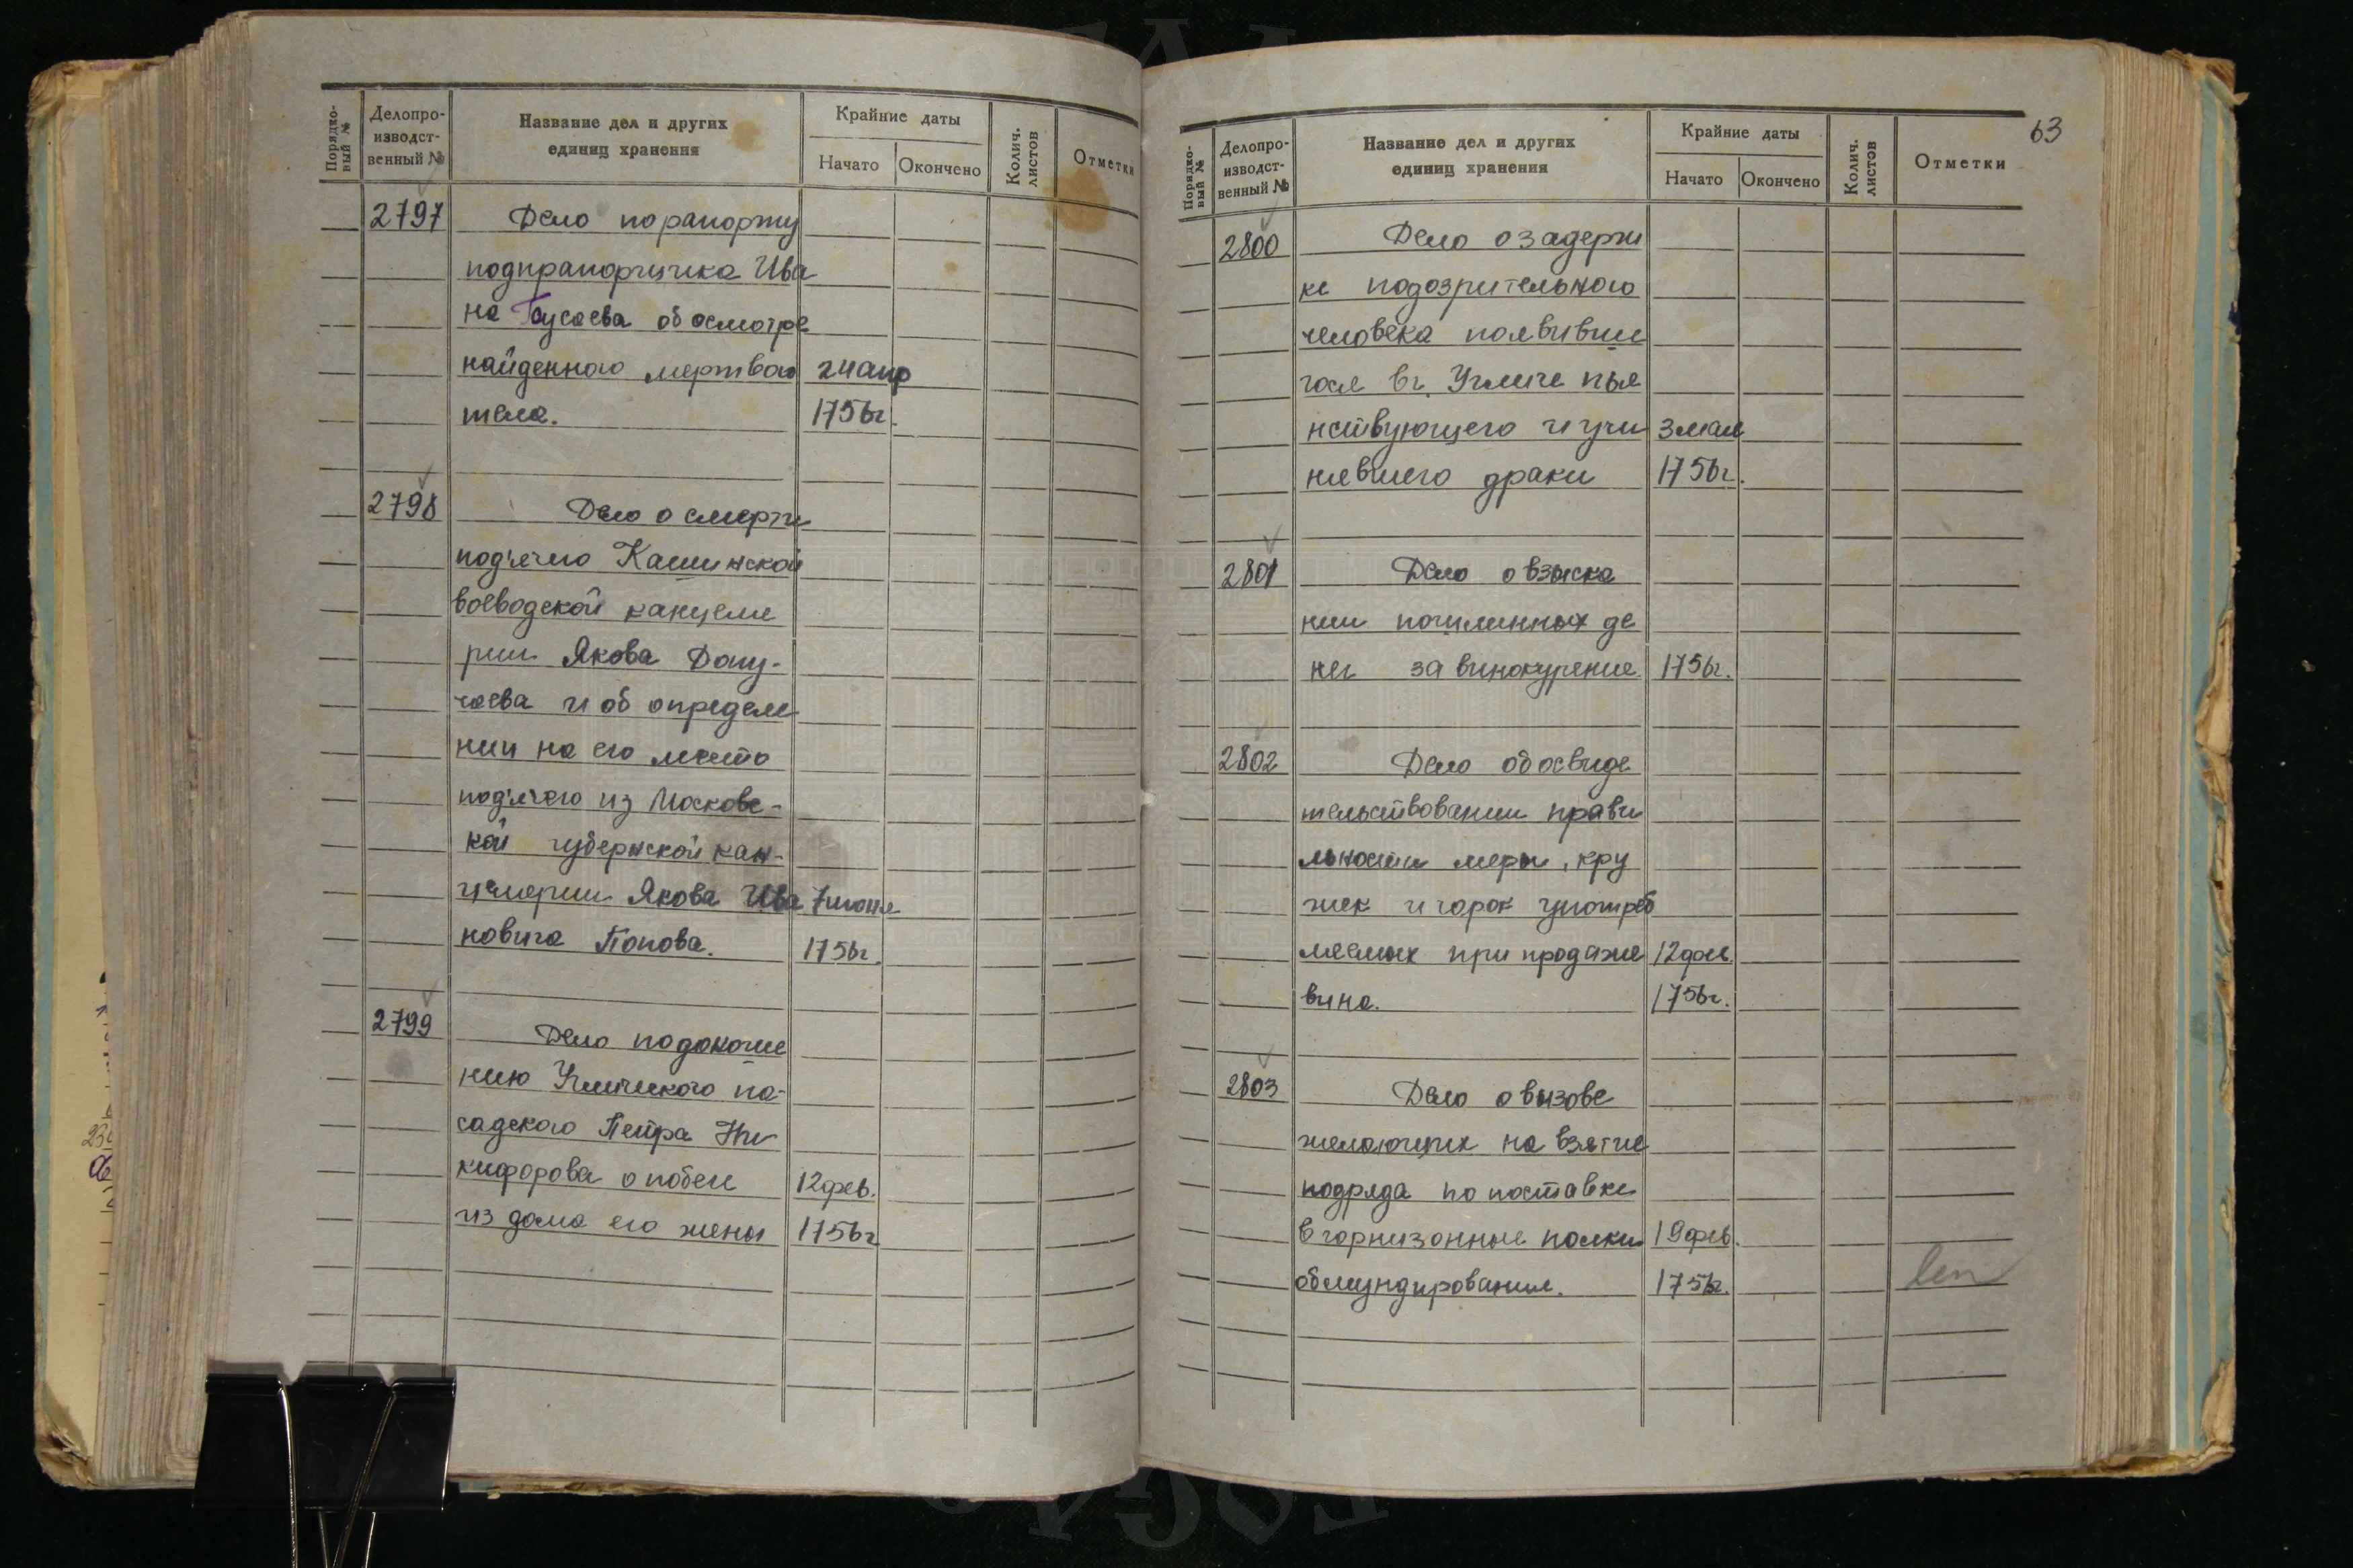 Порядко-
вый №
Делопро-
изводст-
венный №
Название дел и других
единиц хранения
Крайние даты
Начато
Окончено
Колич.
листов
Отметки
2797 Дело по рапорту
подпрапорщика Ива
на Гаусаева об осмотре
найденного мертвого 24 апр
тела. 1756г.
2798 Дело о смерти
под'ячего Кашинской
воеводской канцеля
рии Якова Допу-
чаева и об определе
нии на его место
под'ячего из Московс-
кой губернской кан-
целярии Якова Ива 7 июня
новича Попова. 1756г.
2799 Дело по доноше
нию Угличского по-
садского Петра Ни
кифорова о побеге 12 фев.
из дома его жены 1756г
63
Порядко-
вый №
Делопро-
изводст-
венный №
Название дел и других
единиц хранения
Крайние даты
Начато
Окончено
Колич.
листов
Отметки
2800 Дело о задерж
ке подозрительного
человека появивше
гося в г. Угличе пья
нствующего и учи 3 мая
нявшего драки 1756г.
2801 Дело о взыска
нии пошлинных де
нег за винокурение 1756г.
2802 Дело об освиде
тельствовании прави
льности меры, кру
жек и чарок употреб
ляемых при продаже 12 фев.
вина. 1756г.
2803 Дело о вызове
желающих на взятие
подряда по поставке
в гарнизонные полки 19 фев.
обмундирования. 1756г.